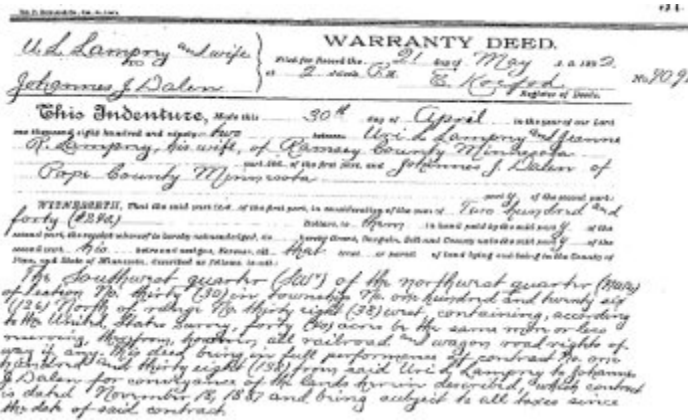 U. L. Lamprey and wife
TO
Johannes J. Dalen
WARRANTY DEED.
Filed for Record the 21 day of May A. D. 1892
at 2 o'clock P. M.
E. Koefod
Register of Deeds.
This Indenture, Made this 30th day of April in the year of our Lord
one thousand eight hundred and ninety-two between Uri L. Lamprey and Jeanne
his wife, of Ramsey County Minnesota
of the first part, and Johannes J. Dalen of
Pope County Minnesota
part y of the second part:
WITNESSETH, That the said part ies of the first part, in consideration of the sum of Two hundred and
forty ($240) Dollars, to them in hand paid by the said part y of the
second part, the receipt whereof is hereby acknowledged, do hereby Grant, Bargain, Sell and Convey unto the said part y of the
second part, his heirs and assigns, Forever, all that tract or parcel of land lying and being in the County of
Pope, and State of Minnesota, described as follows, to-wit:
The Southwest quarter (SW¼) of the northwest quarter (NW¼)
of section No. thirty (30) in township No. one hundred and twenty six
(126) North of range No. thirty eight (38) west, containing, according
to the United States Survey, forty (40) acres be the same more or less
reserving, therefrom, however, all railroad and wagon road rights of
way if any, this deed being in full performance of contract No. one
hundred and thirty eight (138) from said Uri L. Lamprey to Johannes
J Dalen for conveyance of the lands herein described, which contract
is dated November 18, 1887 and being subject to all taxes since
the date of said contract